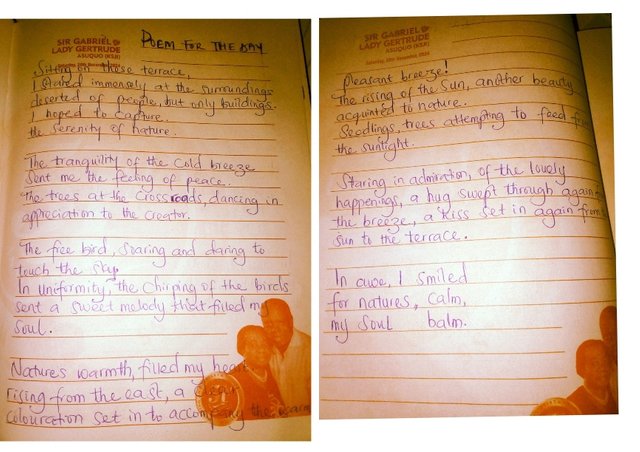 SIR GABRIEL &
LADY GERTRUDE
ASUQUO (KSK)
POEM FOR THE DAY
Sitting on these terrace,
I stared immensely at the surroundings
deserted of people, but only buildings.
I hoped to capture,
the serenity of nature.
The tranquility of the cold breeze
Sent me the feeling of peace.
The trees at the crossroads, dancing in
appreciation to the creator.
The free bird, soaring and daring to
touch the sky
In uniformity, the chirping of the birds
sent a sweet melody that filled my
soul.
Nature's warmth, filled my heart
rising from the east, a
colouration set in to accompany the
SIR GABRIEL &
LADY GERTRUDE
ASUQUO (KSK)
pleasant breeze!
The rising of the sun, another beauty
acquinted to nature.
Seedlings, trees attempting to feed from
the sunlight.
Staring in admiration, of the lovely
happenings, a hug swept through again
the breeze, a kiss set in again from
sun to the terrace.
In awe, I smiled
for natures, calm,
my soul balm.